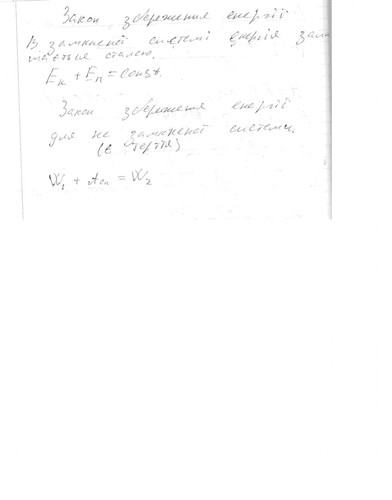 Закон збереження енергії
В замкненої системі енергія зали
шається сталою.
Eк + Eп = const.
Закон збереження енергії
для не замкненої системи.
(є тертя)
W₁ + Aсп = W₂